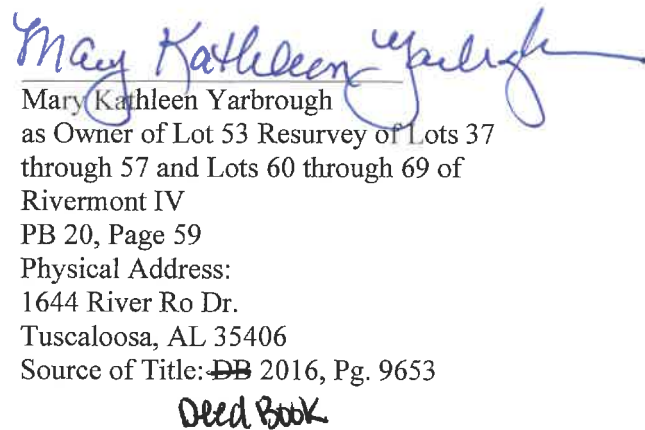 Mary Kathleen Yarbrough
Mary Kathleen Yarbrough
as Owner of Lot 53 Resurvey of Lots 37
through 57 and Lots 60 through 69 of
Rivermont IV
PB 20, Page 59
Physical Address:
1644 River Ro Dr.
Tuscaloosa, AL 35406
Source of Title: DB 2016, Pg. 9653
Deed Book